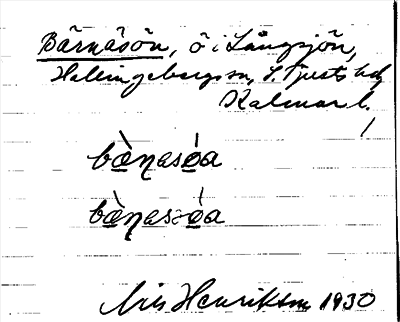 Bärnäsön, ö i Långsjön,
Hallingebergs sn, S. Tjusts hd,
Kalmar l.
bæ̀ɳasǿa
bæ̀ɳasǿa
Henriksson 1930